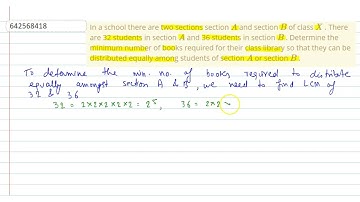 642568418
In a school there are two sections section A and section B of class X. There
are 32 students in section A and 36 students in section B. Determine the
minimum number of books required for their class library so that they can be
distributed equally among students of section A or section B.
To determine the min. no. of books required to distribute
equally amongst section A & B, we need to find LCM of
32 & 36
32 = 2×2×2×2×2 = 2⁵, 36 = 2×2×